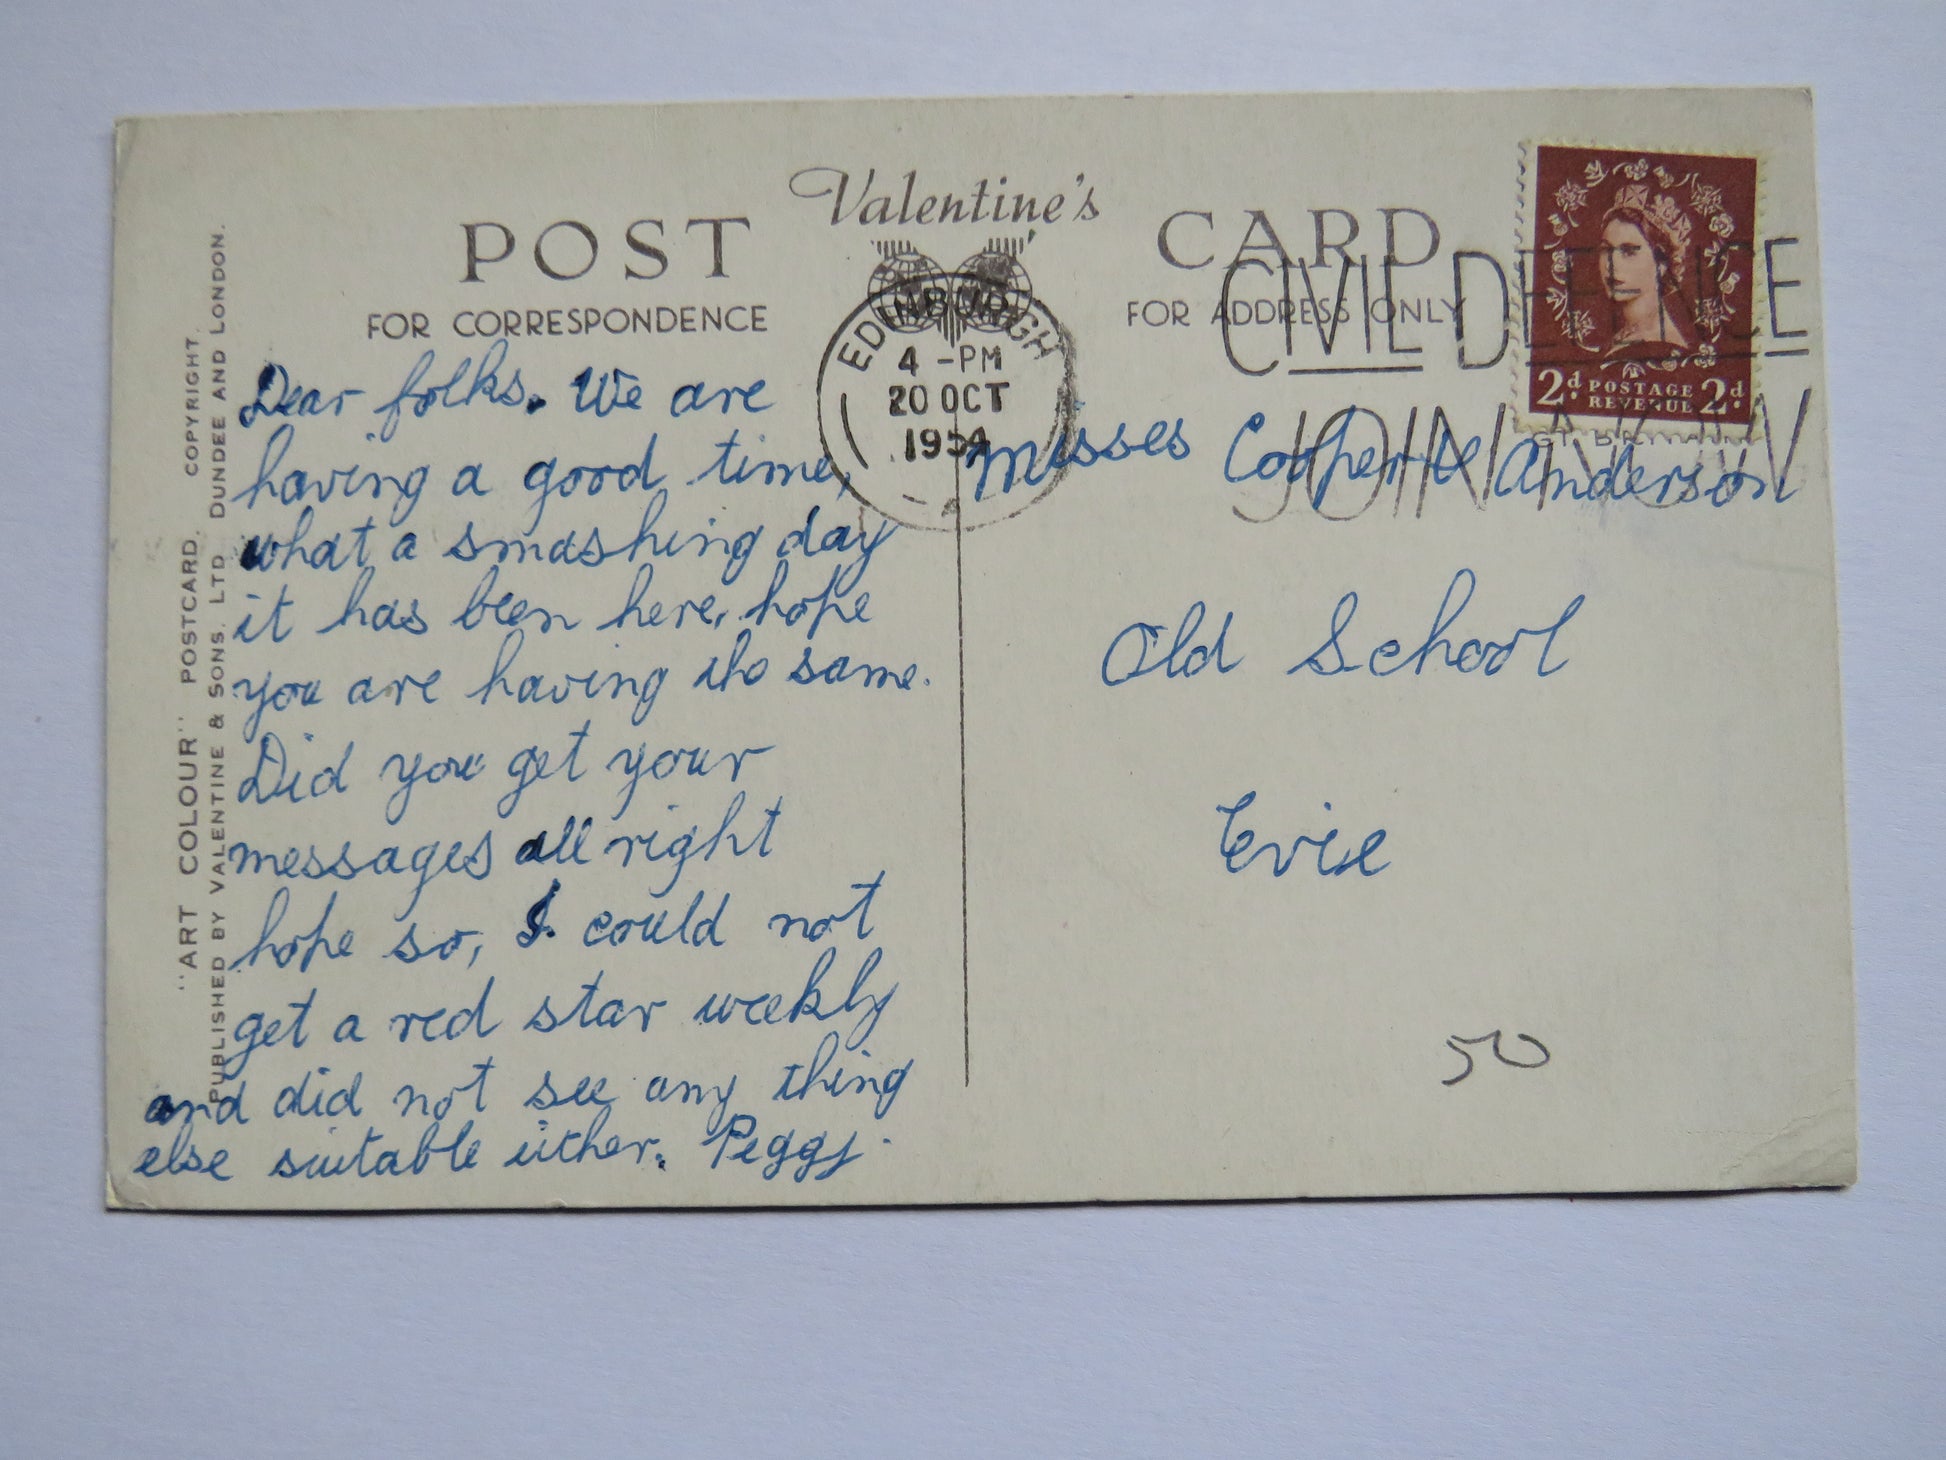 Valentine's
POST CARD
FOR CORRESPONDENCE
FOR ADDRESS ONLY
EDINBURGH
4 - PM
20 OCT
1954
CIVIL DEFENCE
JOIN NOW
2d POSTAGE 2d
REVENUE
Dear folks. We are
having a good time,
what a smashing day
it has been here, hope
you are having the same.
Did you get your
messages all right
hope so, I could not
get a red star weekly
and did not see any thing
else suitable either. Peggy.
Misses Cooper & Anderson
Old School
Evie
50
"ART COLOUR" POSTCARD. COPYRIGHT.
PUBLISHED BY VALENTINE & SONS, LTD. DUNDEE AND LONDON.